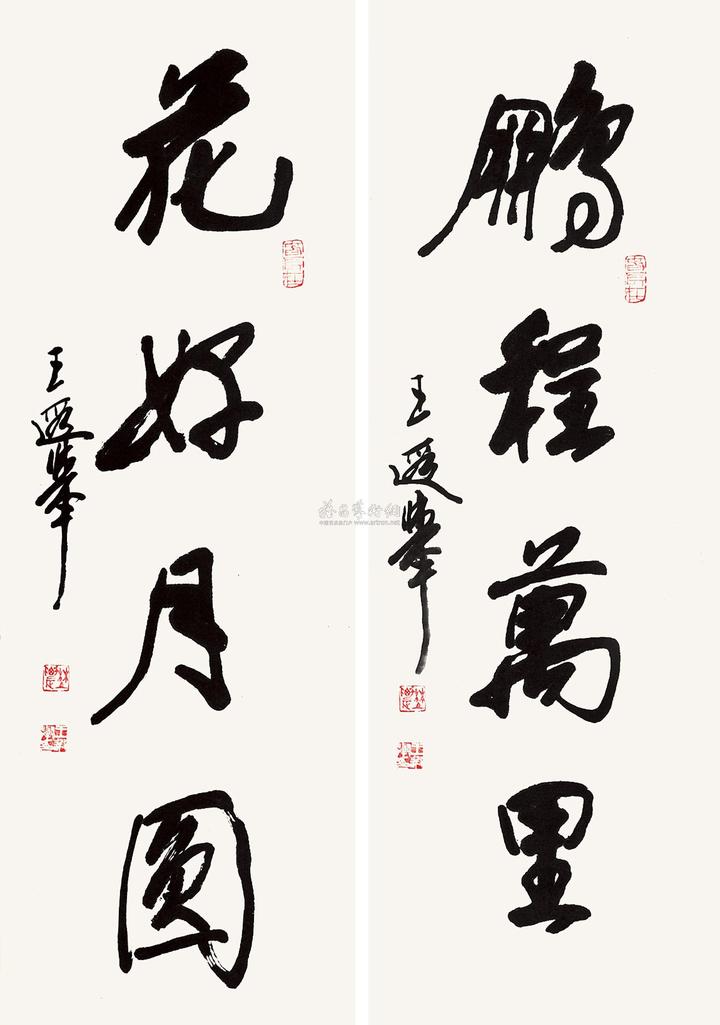 鵬程萬里
王遐舉
花好月圓
王遐舉
www.artron.net